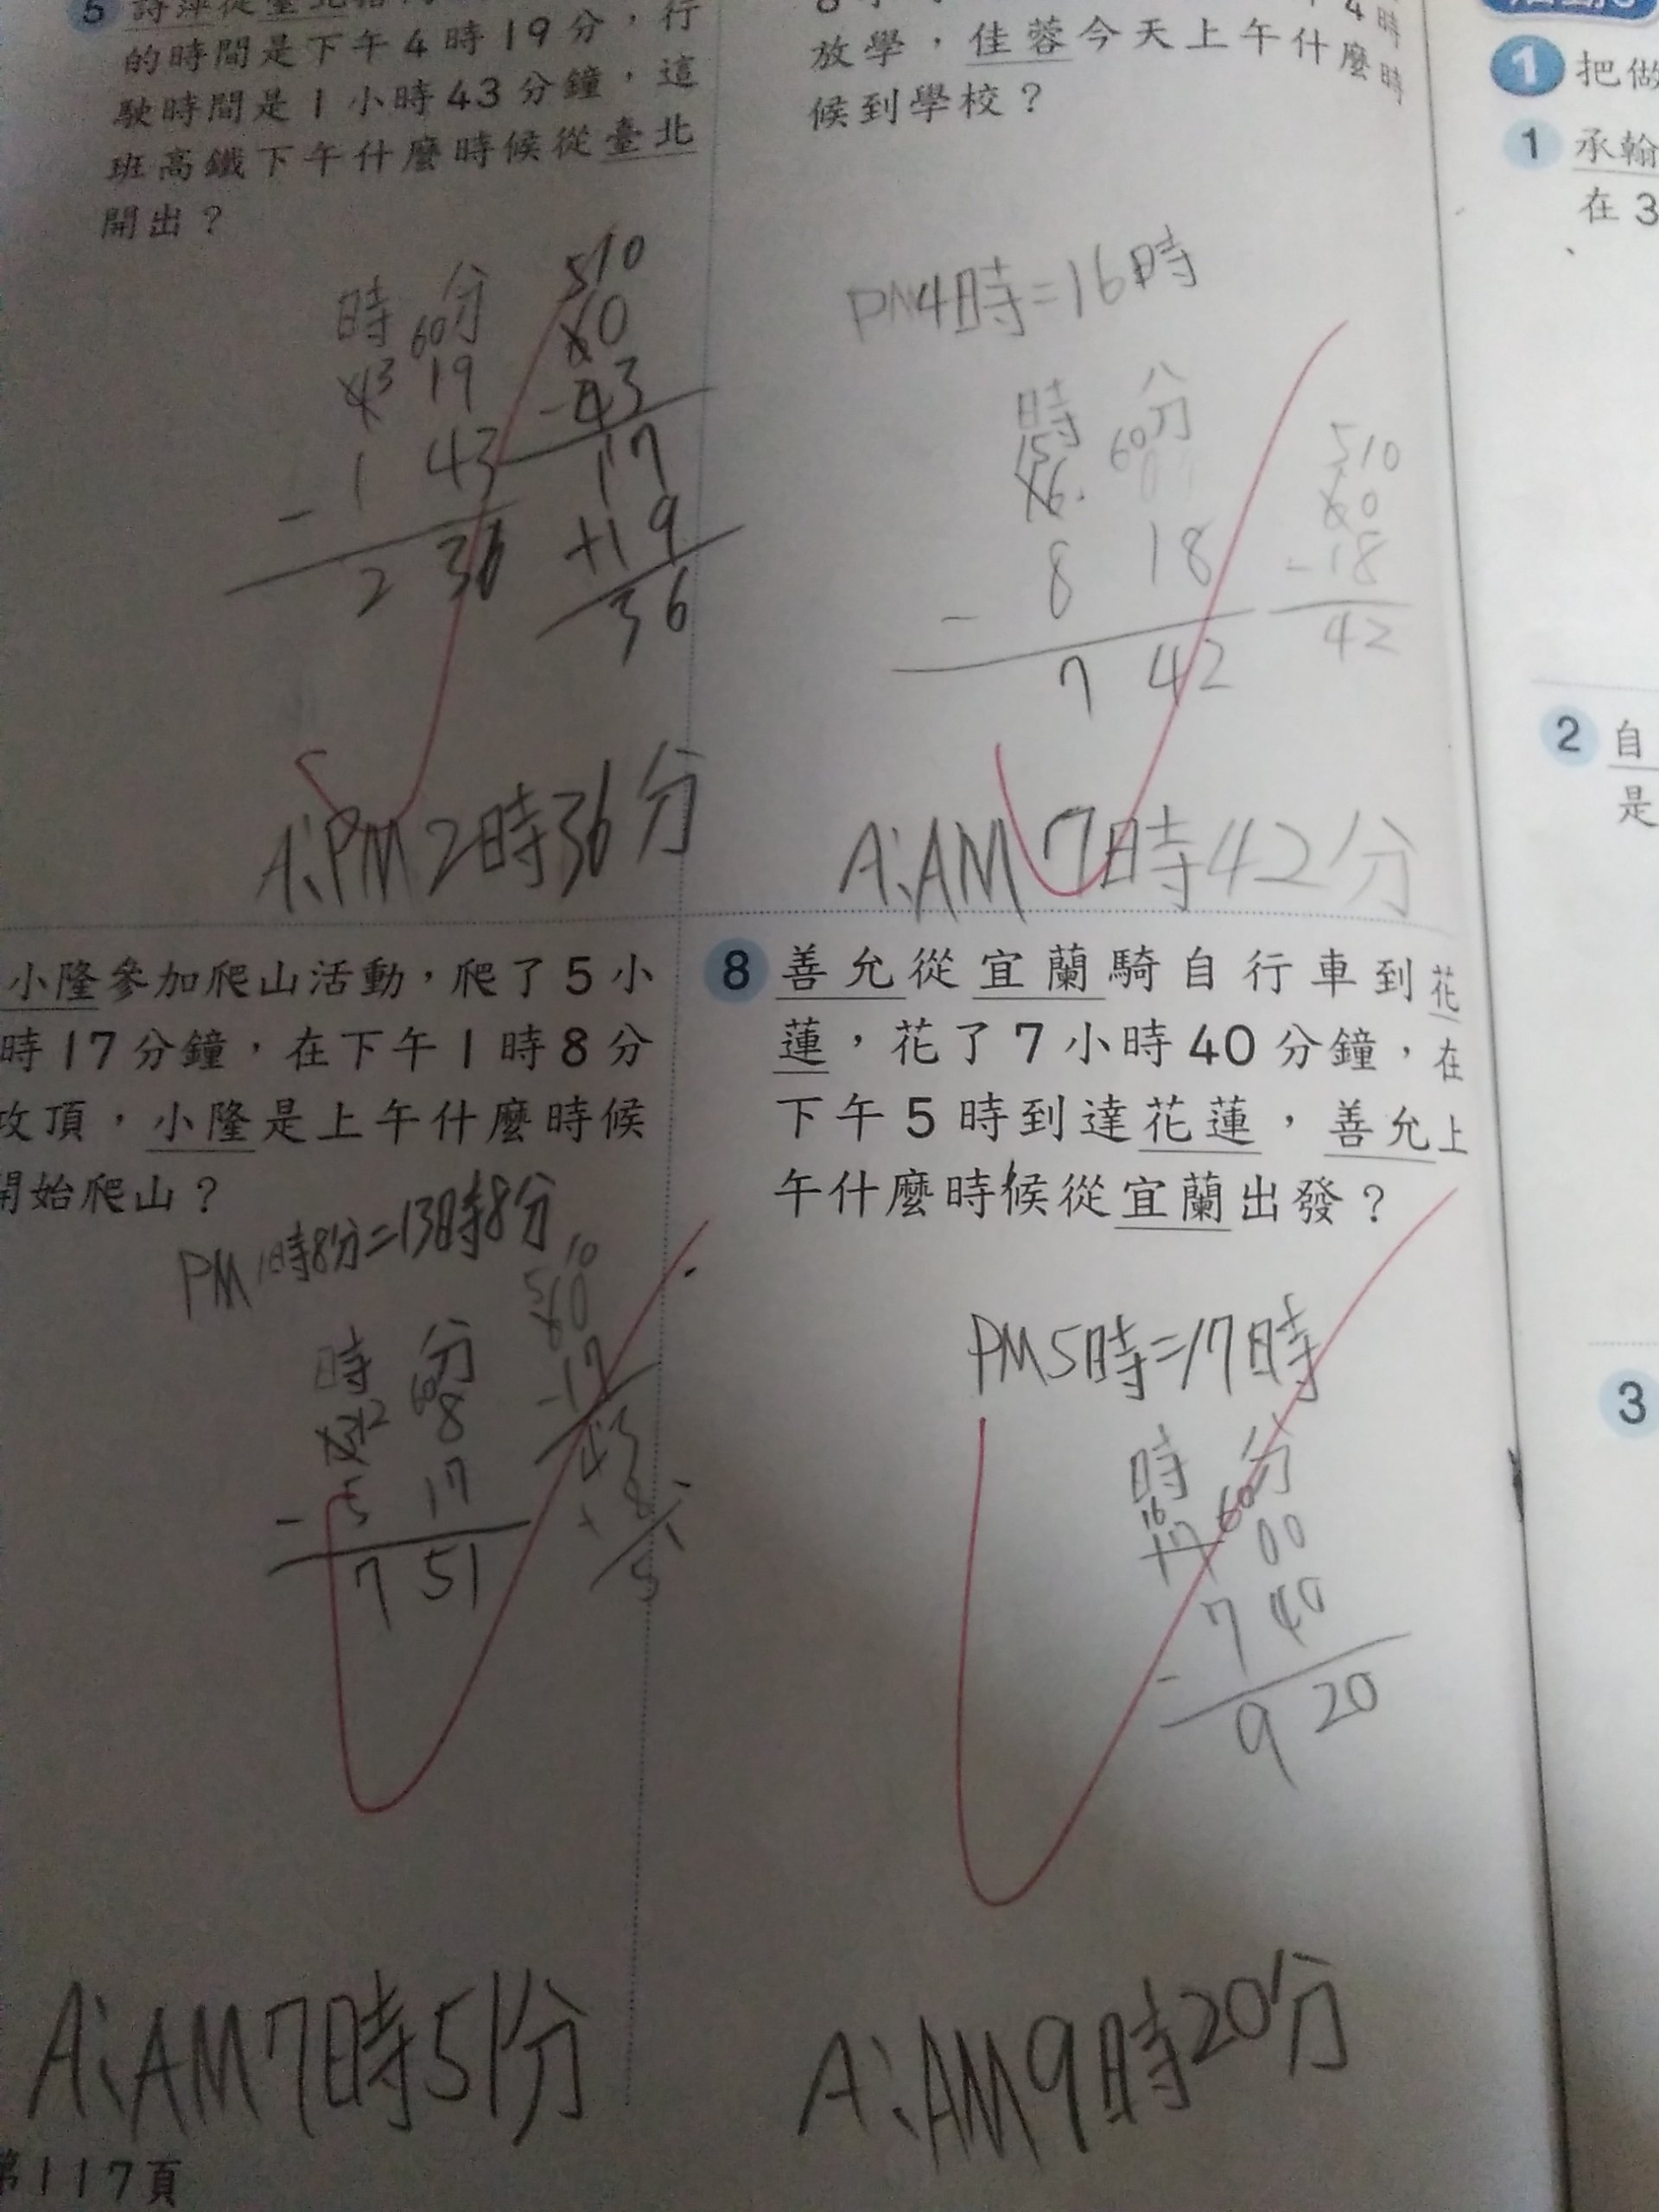 5
的時間是下午4時19分，行
駛時間是1小時43分鐘，這
班高鐵下午什麼時候從臺北
開出？
時 分
60
3 19
- 1 43
2 36
5 10
60
-43
17
+19
36
A:PM2時36分
4時
放學，佳蓉今天上午什麼時
候到學校？
PM4時=16時
時 分
15 60
16
- 8 18
7 42
5 10
60
-18
42
A:AM7時42分
小隆參加爬山活動，爬了5小
時17分鐘，在下午1時8分
攻頂，小隆是上午什麼時候
開始爬山？
PM1時8分=13時8分
時 分
60
12 8
- 5 17
7 51
10
5 60
-17
43
+ 8
51
A:AM7時51分
8 善允從宜蘭騎自行車到花
蓮，花了7小時40分鐘，在
下午5時到達花蓮，善允上
午什麼時候從宜蘭出發？
PM5時=17時
時 分
16 60
17 00
- 7 40
9 20
A:AM9時20分
第117頁
1 把做
1 承翰
在3
2 自
是
3